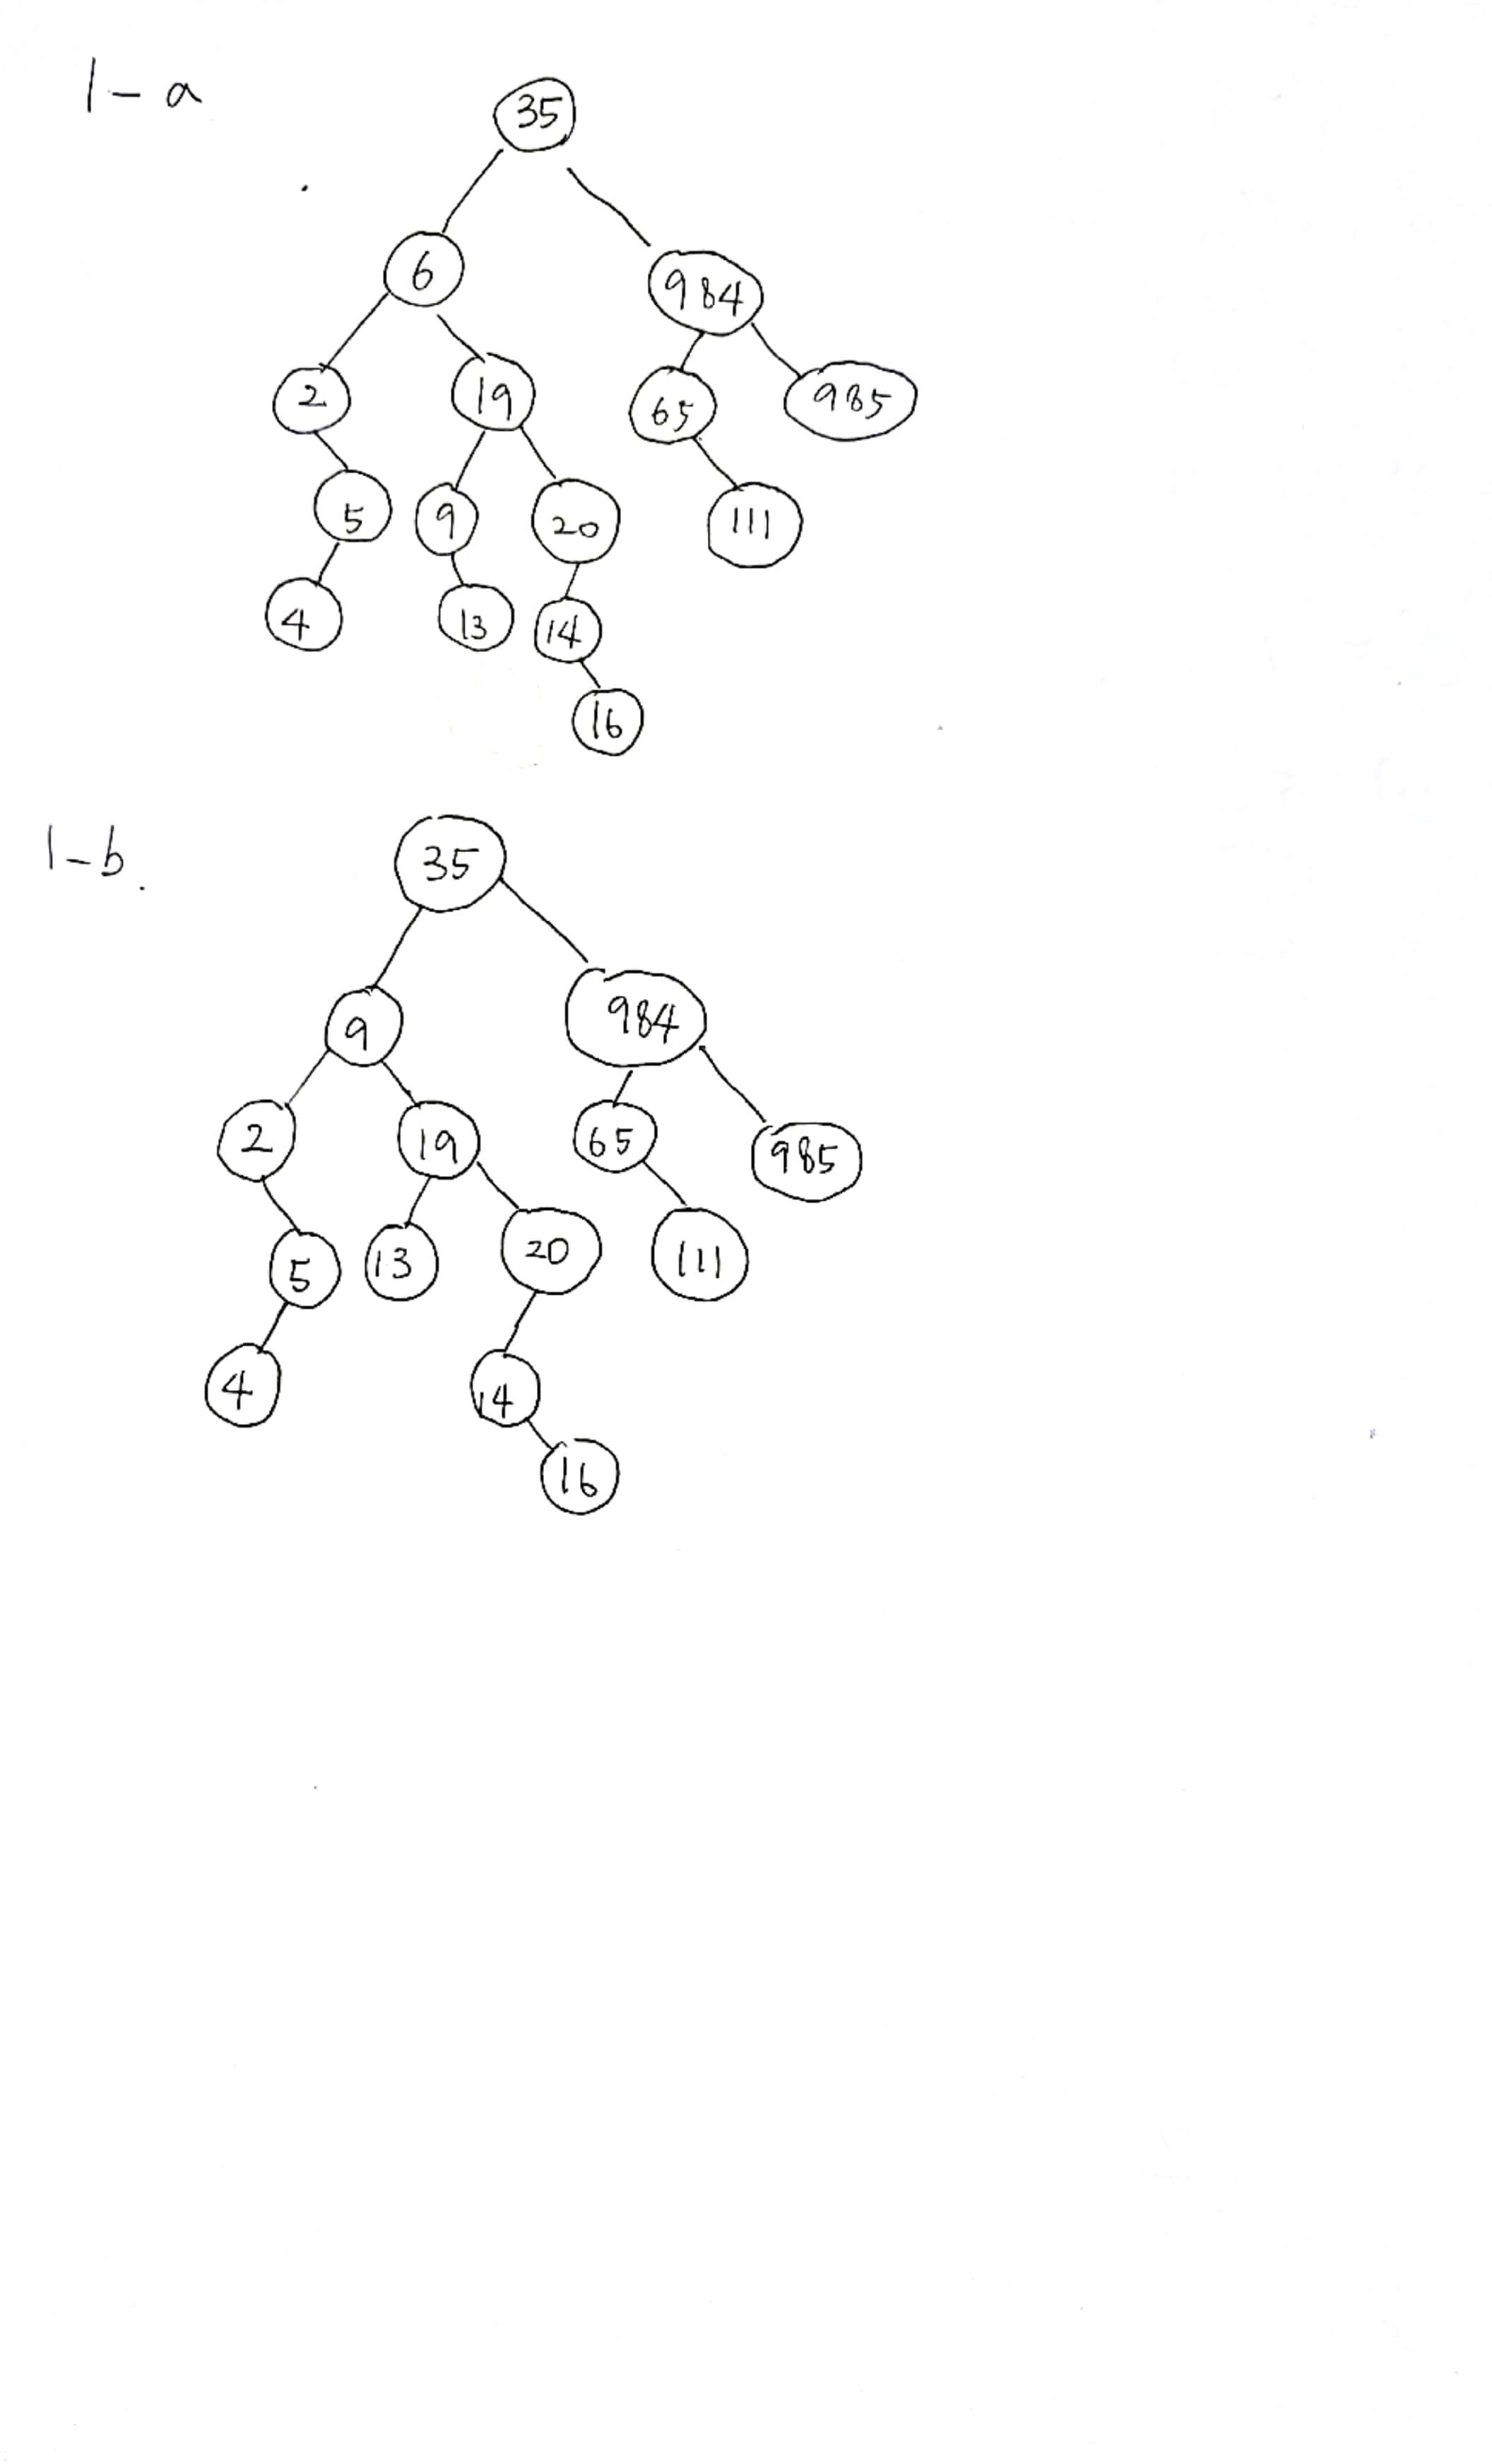 1-a
35
6
984
2
19
65
985
5
9
20
111
4
13
14
16
1-b.
35
9
984
2
19
65
985
5
13
20
111
4
14
16